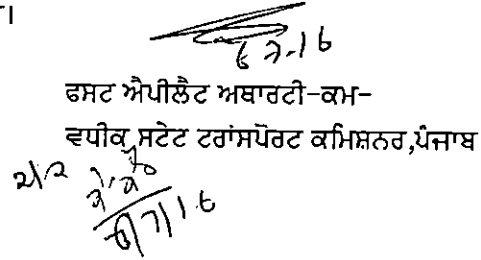 ਾ।
6 7-16
ਫਸਟ ਐਪੀਲੈਟ ਅਥਾਰਟੀ-ਕਮ-
ਵਧੀਕ ਸਟੇਟ ਟਰਾਂਸਪੋਰਟ ਕਮਿਸ਼ਨਰ,ਪੰਜਾਬ
6/7/16